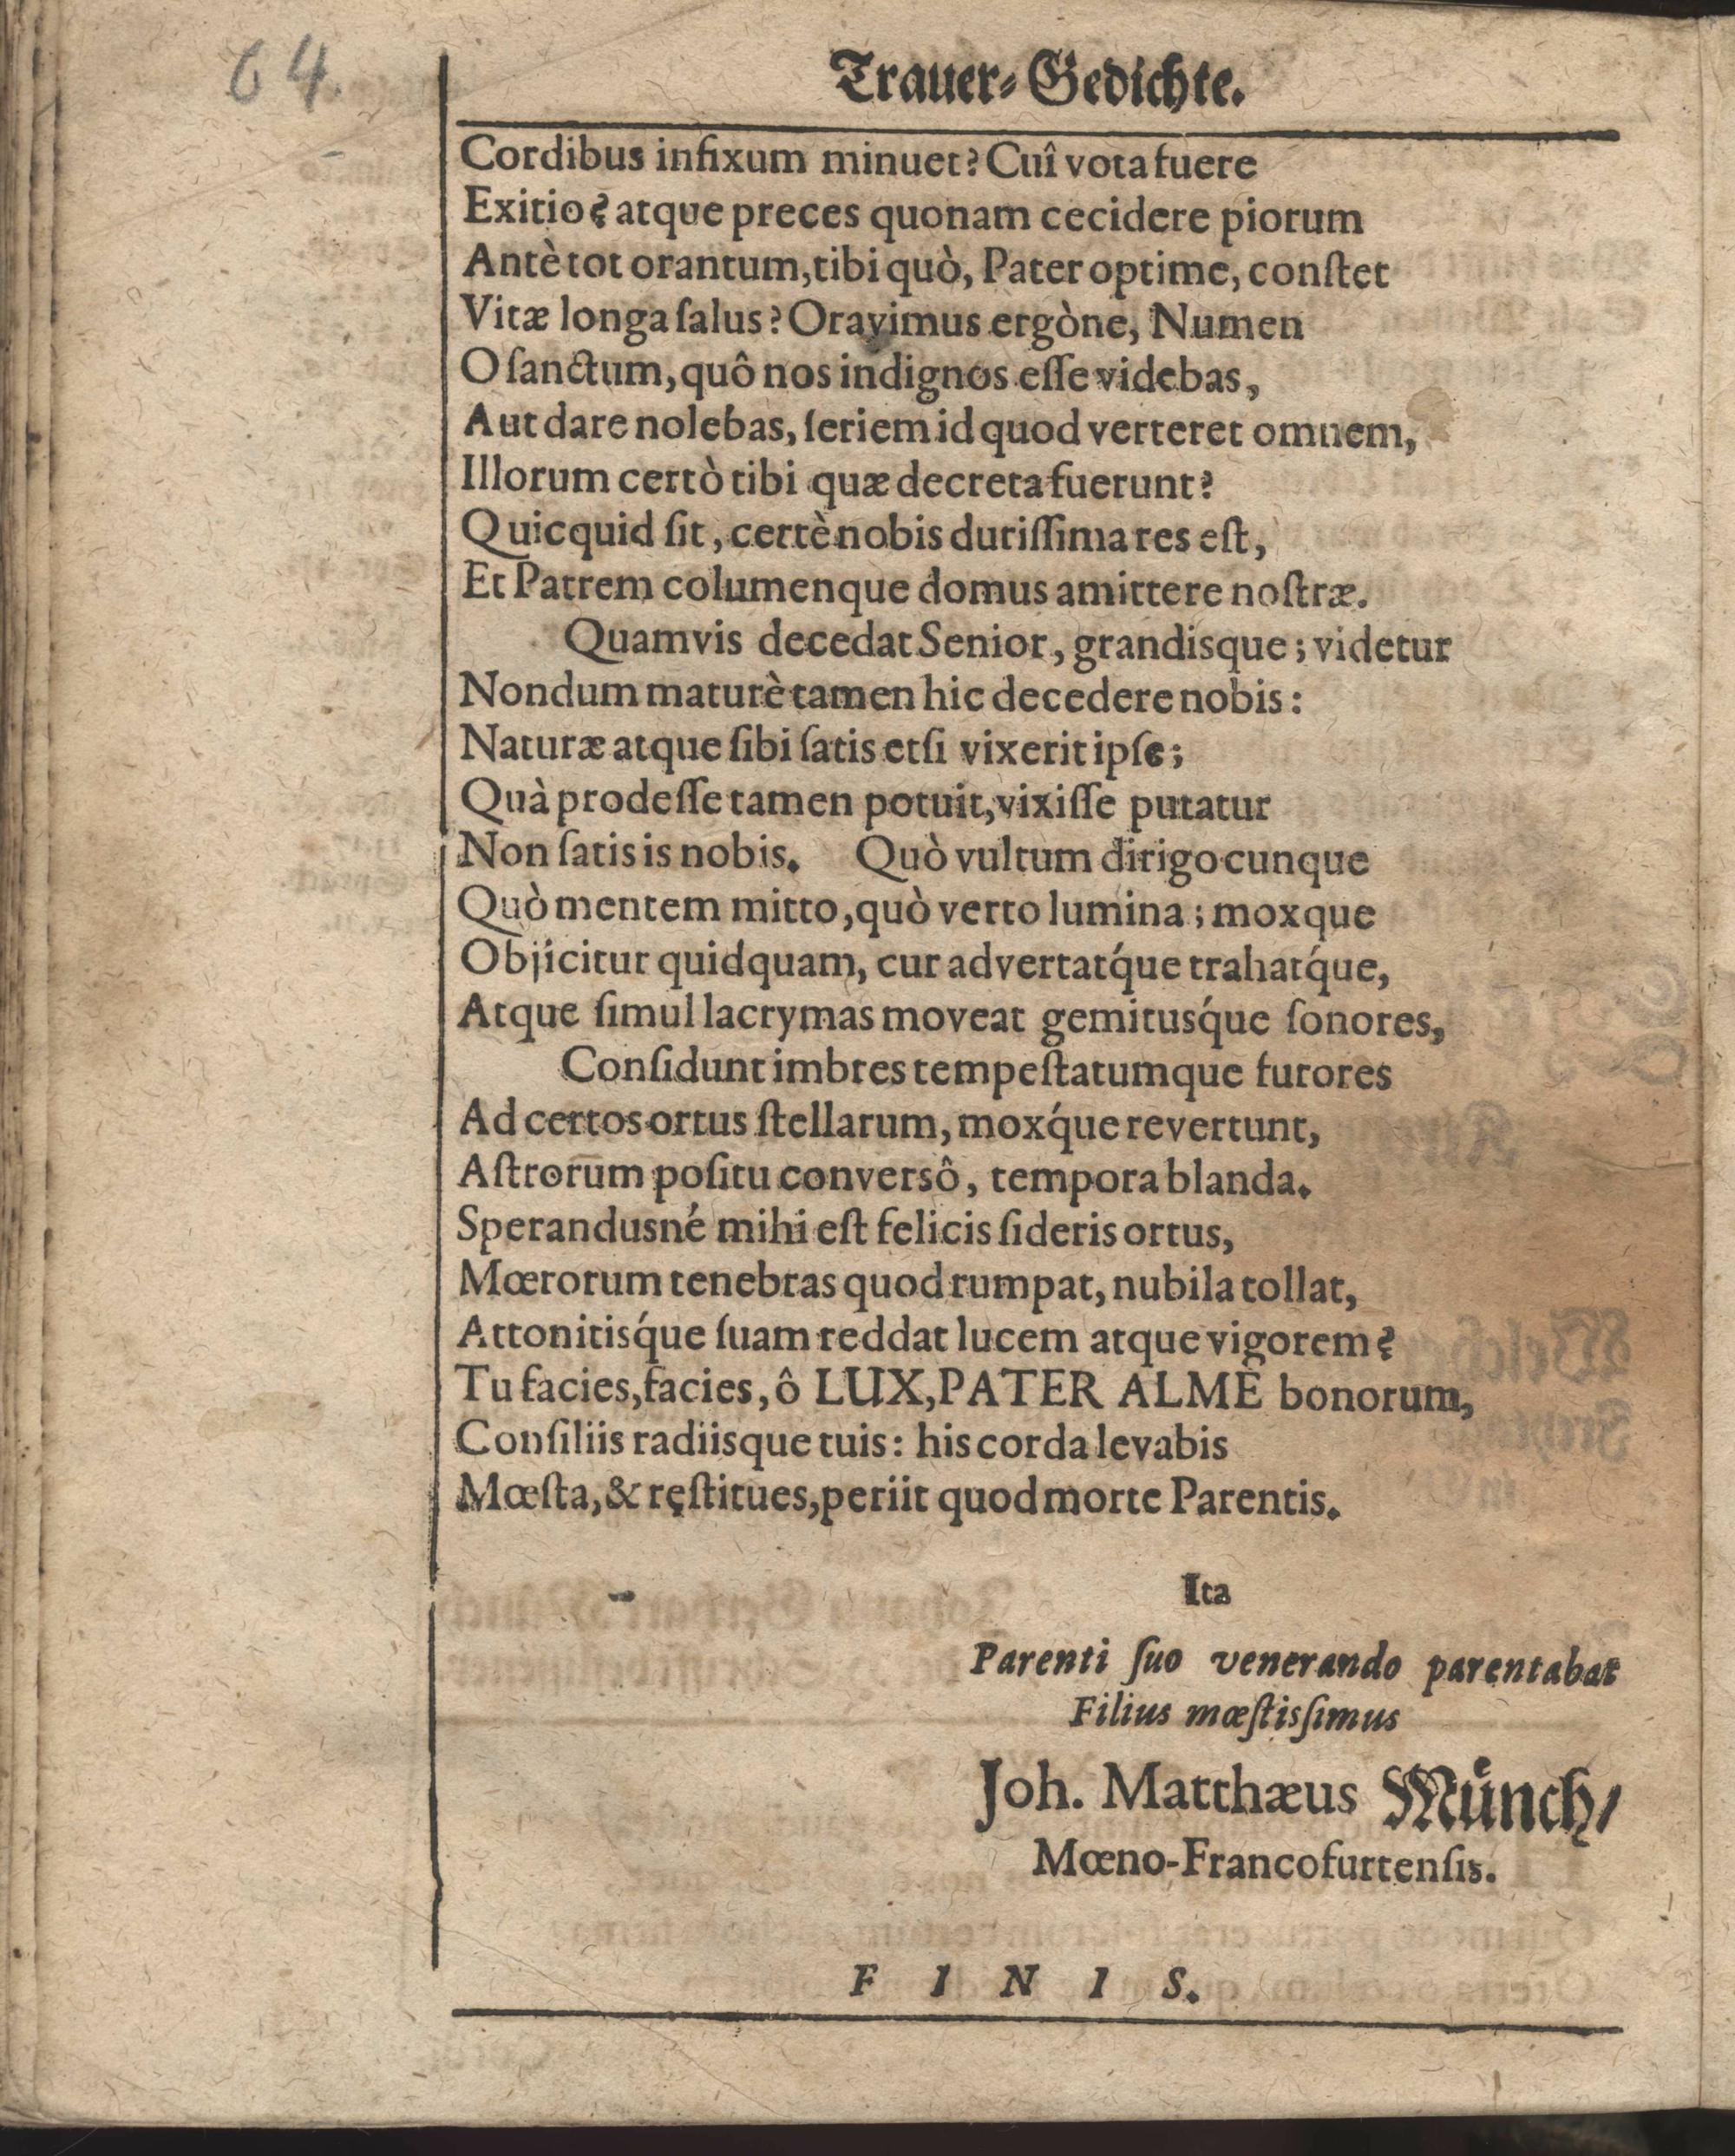 64.
Trauer-Gedichte.
Cordibus infixum minuet? Cuî vota fuere
Exitio? atque preces quonam cecidere piorum
Antè tot orantum, tibi quò, Pater optime, conſtet
Vitæ longa ſalus? Oravimus ergòne, Numen
O ſanctum, quô nos indignos eſſe videbas,
Aut dare nolebas, ſeriem id quod verteret omnem,
Illorum certò tibi quæ decreta fuerunt?
Quicquid ſit, certè nobis duriſſima res eſt,
Et Patrem columenque domus amittere noſtræ.
Quamvis decedat Senior, grandisque; videtur
Nondum maturè tamen hic decedere nobis:
Naturæ atque ſibi ſatis etſi vixerit ipſe;
Quà prodeſſe tamen potuit, vixiſſe putatur
Non ſatis is nobis. Quò vultum dirigo cunque
Quò mentem mitto, quò verto lumina; moxque
Objicitur quidquam, cur advertatq́ue trahatq́ue,
Atque ſimul lacrymas moveat gemitusq́ue ſonores,
Conſidunt imbres tempeſtatumque furores
Ad certos ortus ſtellarum, moxq́ue revertunt,
Aſtrorum poſitu conversô, tempora blanda.
Sperandusné mihi eſt felicis ſideris ortus,
Mœrorum tenebras quod rumpat, nubila tollat,
Attonitisq́ue ſuam reddat lucem atque vigorem?
Tu facies, facies, ô LUX, PATER ALME bonorum,
Conſiliis radiisque tuis: his corda levabis
Mœſta, & reſtitues, periit quod morte Parentis.
Ita
Parenti ſuo venerando parentabat
Filius mœſtisſimus
Joh. Matthæus Münch/
Mœno-Francofurtenſis.
F I N I S.